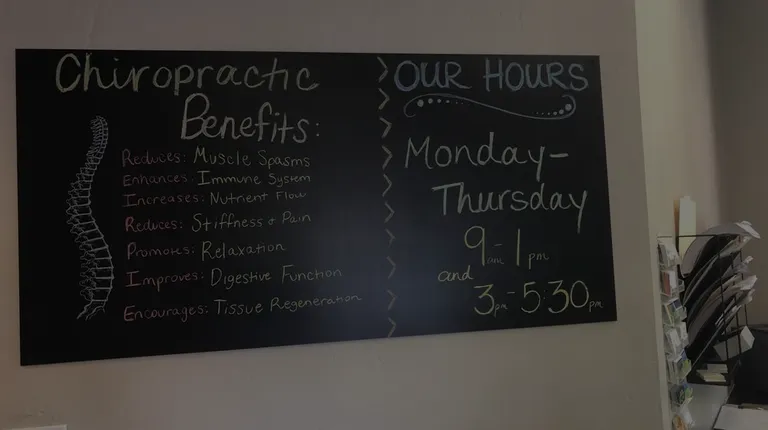 Chiropractic
Benefits:
Reduces: Muscle Spasms
Enhances: Immune System
Increases: Nutrient Flow
Reduces: Stiffness & Pain
Promotes: Relaxation
Improves: Digestive Function
Encourages: Tissue Regeneration
OUR HOURS
Monday-
Thursday
9am-1pm
and
3pm-5:30pm